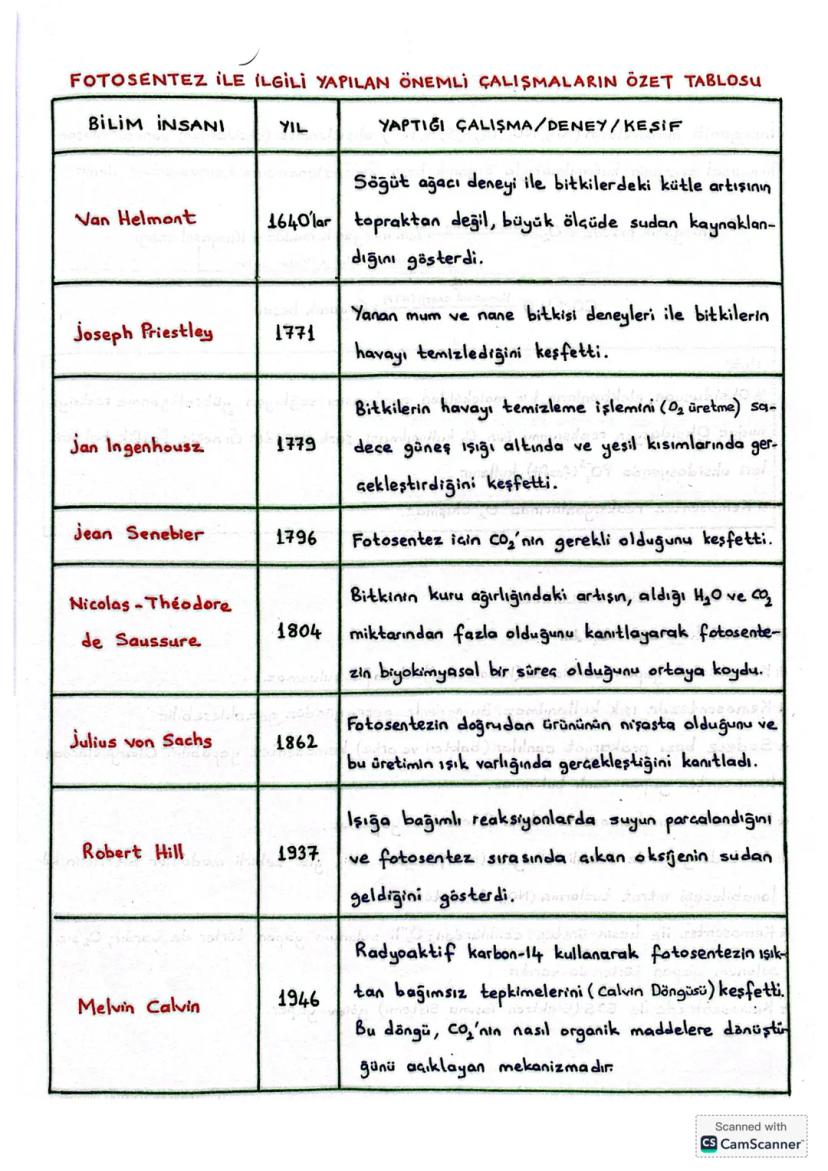 FOTOSENTEZ İLE İLGİLİ YAPILAN ÖNEMLİ ÇALIŞMALARIN ÖZET TABLOSU
BİLİM İNSANI YIL YAPTIĞI ÇALIŞMA/DENEY/KEŞİF
Van Helmont 1640'lar
Söğüt ağacı deneyi ile bitkilerdeki kütle artışının
topraktan değil, büyük ölçüde sudan kaynaklan-
dığını gösterdi.
Joseph Priestley 1771
Yanan mum ve nane bitkisi deneyleri ile bitkilerin
havayı temizlediğini keşfetti.
Jan Ingenhousz 1779
Bitkilerin havayı temizleme işlemini (O₂ üretme) sa-
dece güneş ışığı altında ve yeşil kısımlarında ger-
çekleştirdiğini keşfetti.
Jean Senebier 1796
Fotosentez için CO₂'nin gerekli olduğunu keşfetti.
Nicolas-Théodore
de Saussure 1804
Bitkinin kuru ağırlığındaki artışın, aldığı H₂O ve CO₂
miktarından fazla olduğunu kanıtlayarak fotosente-
zin biyokimyasal bir süreç olduğunu ortaya koydu.
Julius von Sachs 1862
Fotosentezin doğrudan ürününün nişasta olduğunu ve
bu üretimin ışık varlığında gerçekleştiğini kanıtladı.
Robert Hill 1937
Işığa bağımlı reaksiyonlarda suyun parçalandığını
ve fotosentez sırasında çıkan oksijenin sudan
geldiğini gösterdi.
Melvin Calvin 1946
Radyoaktif karbon-14 kullanarak fotosentezin ışık-
tan bağımsız tepkimelerini (Calvin Döngüsü) keşfetti.
Bu döngü, CO₂'nin nasıl organik maddelere dönüştü-
ğünü açıklayan mekanizmadır.
Scanned with
CS CamScanner